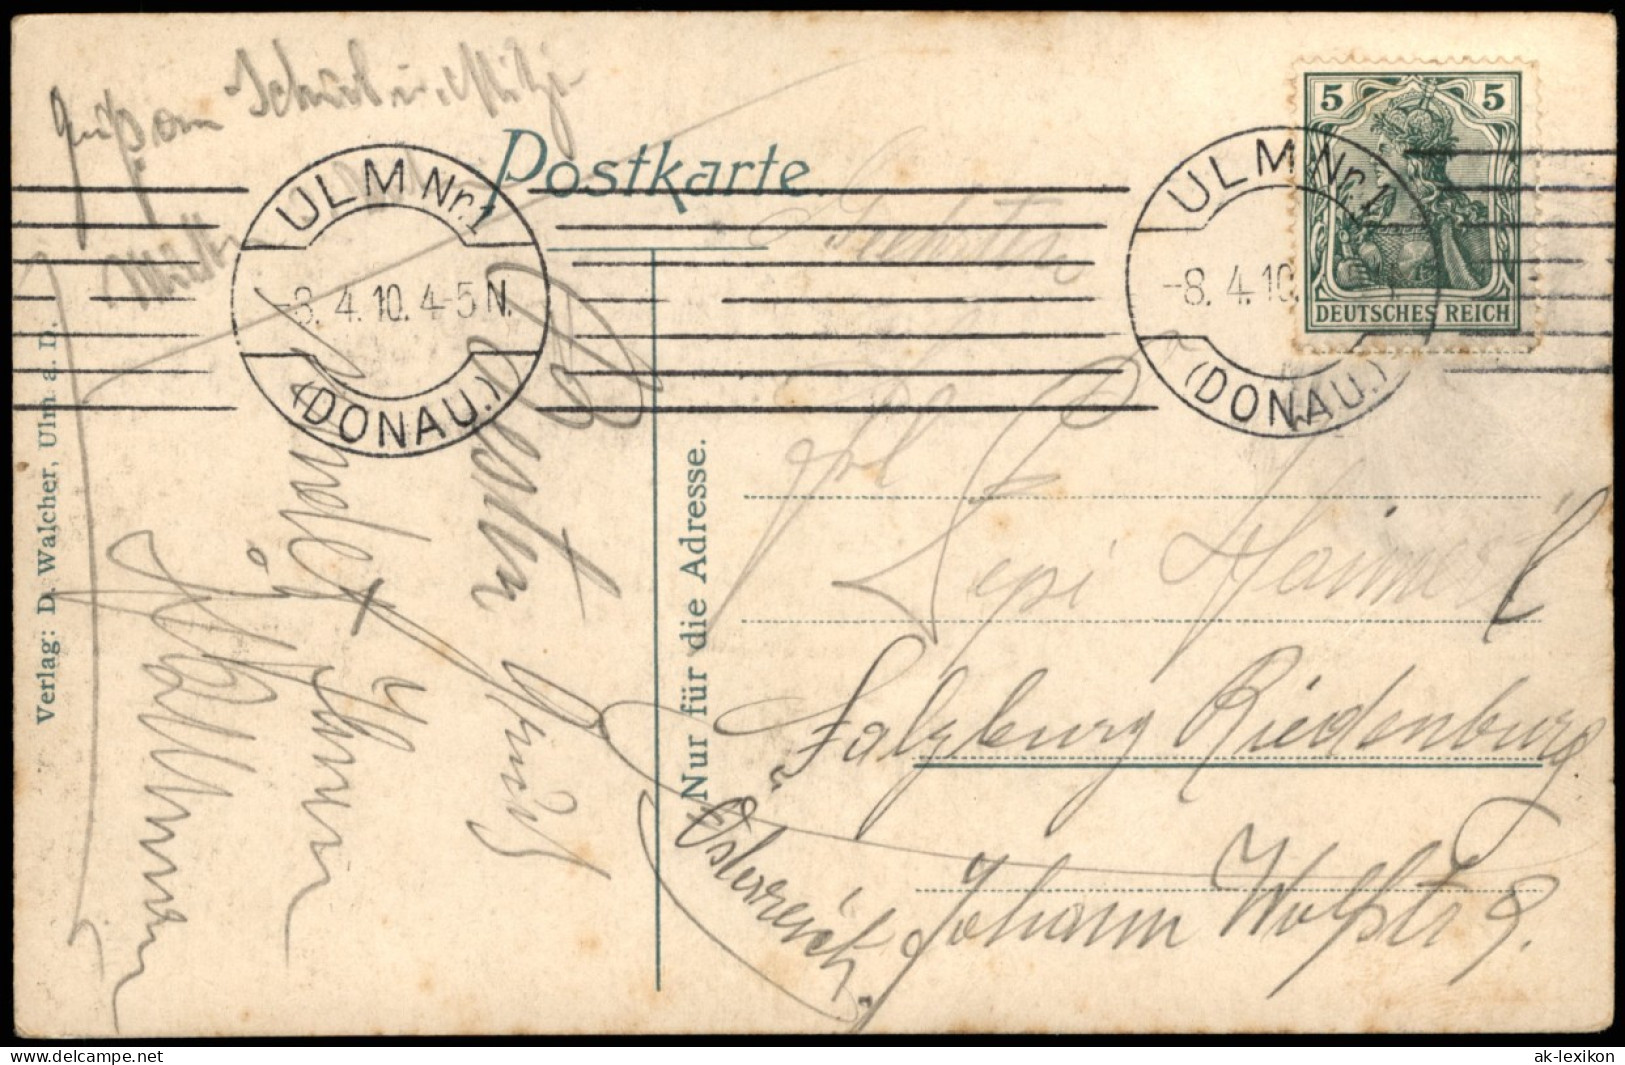 Postkarte
ULM Nr. 1
-8. 4. 10. 4-5 N.
(DONAU.)
ULM Nr. 1
-8. 4. 10.
(DONAU.)
5 5
DEUTSCHES REICH
Verlag: D. Walcher, Ulm a. D.
Nur für die Adresse.
Besten Gruß
sendet Ihnen
Frl
Pepi
Salzburg Riedenburg
Johann Wolfstr 9.
Österreich.
ak-lexikon